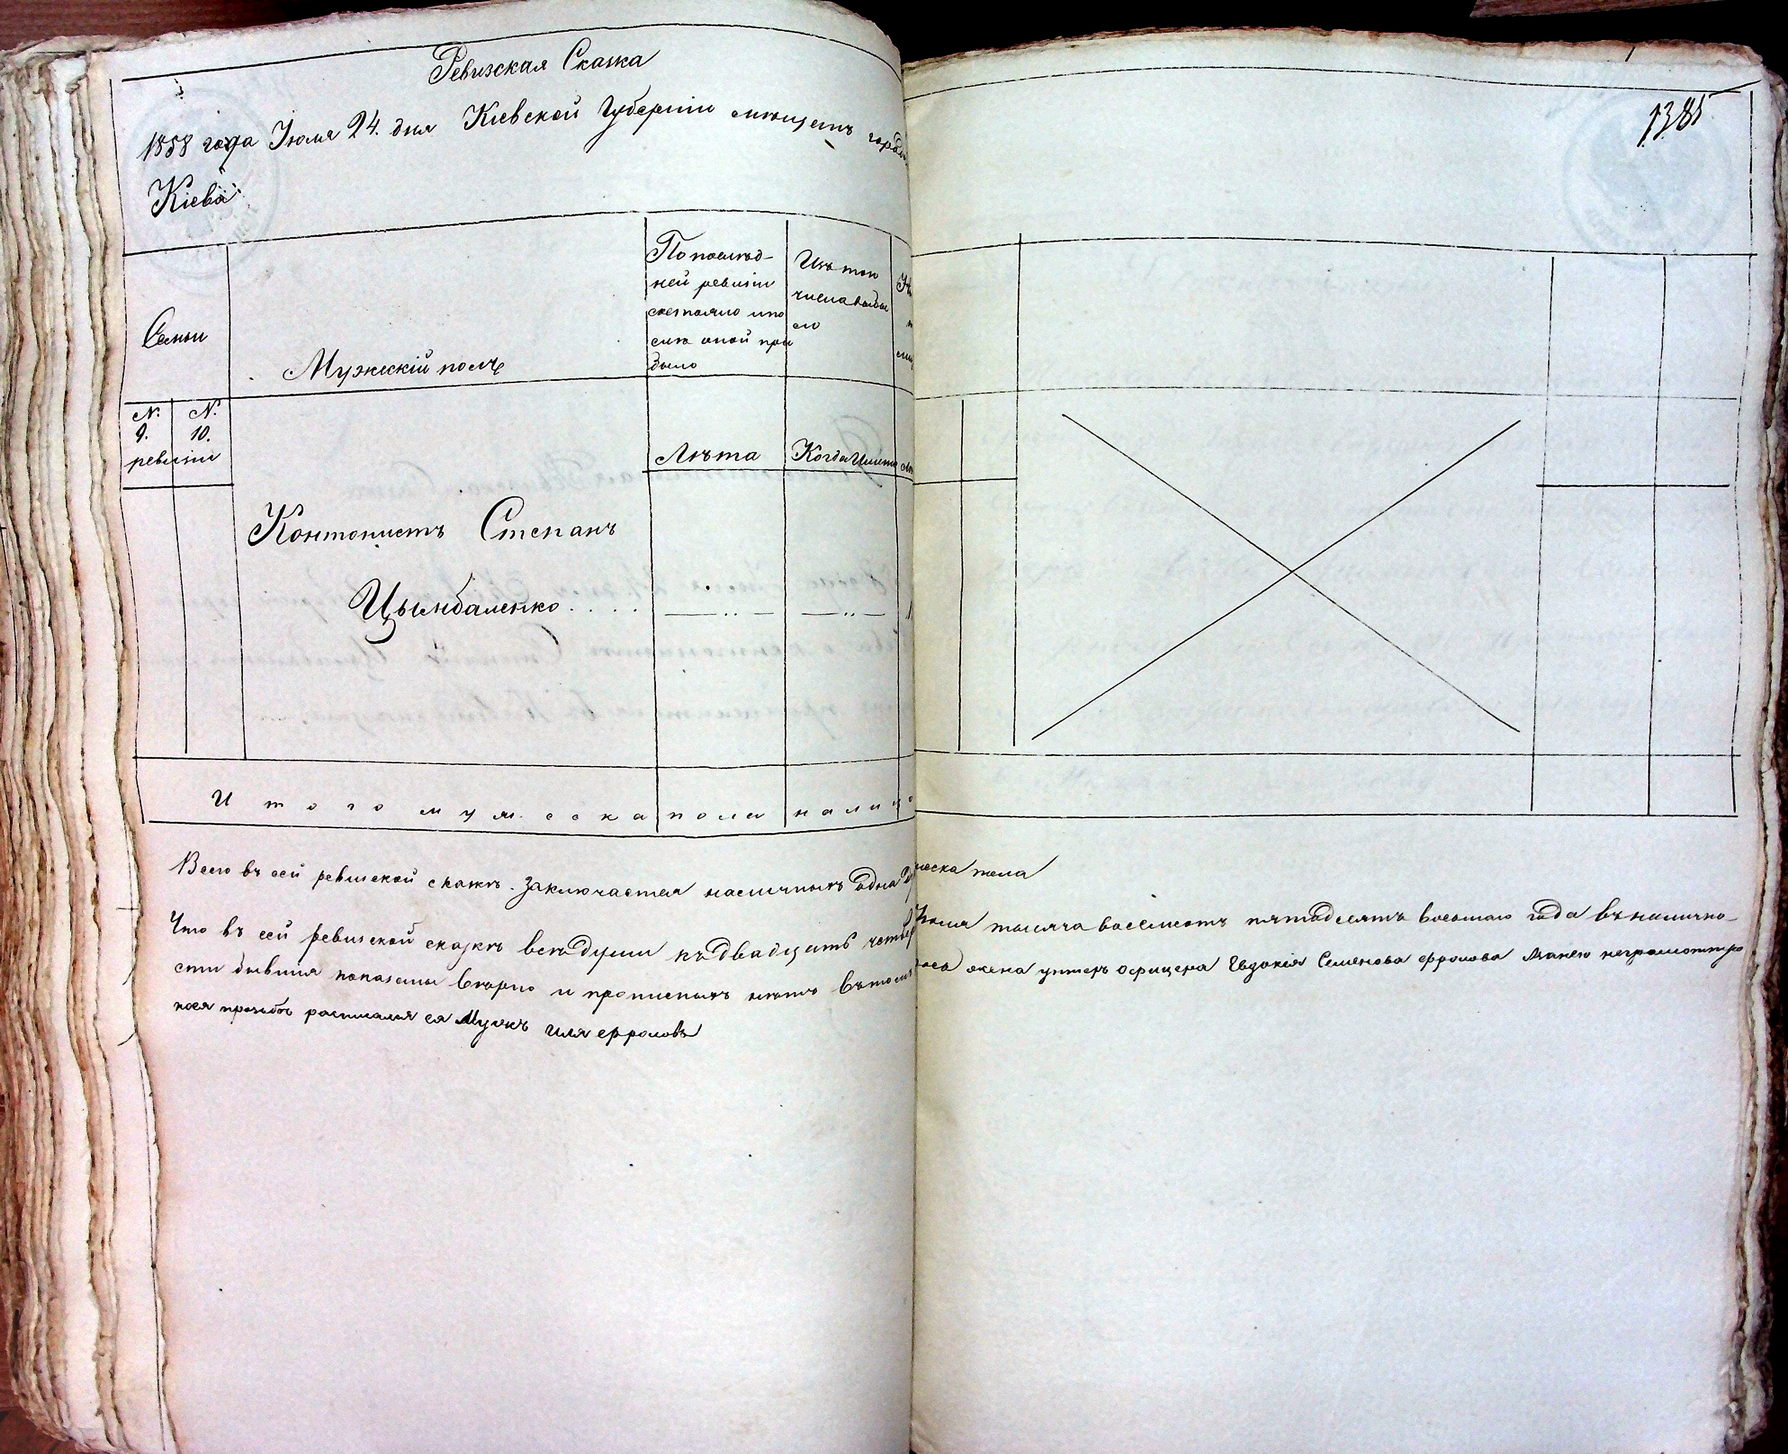 Ревизская Сказка
1858 года Іюля 24. дня Кіевской Губерніи мещанъ города
Кіева
1381
Семьи
Мужескій полъ
По послѣд-
ней ревизіи
состояло и по
слѣ оной при
было
Изъ того
числа выбы
ло
N. 9. N. 10.
ревизіи
Лѣта
Когда Имянно
Контонистъ Степанъ
Цымбаленко
Итого мужеска пола налицо
Всего въ сей ревизской сказкѣ заключается наличныхъ одна мужеска пола
Что въ сей ревизской сказкѣ всѣ души къ двадцать четвер Іюля тысяча восемсотъ пятьдесятъ восьмаго года въ налично-
сти бывшія показаны вѣрно и прописныхъ нѣтъ въ томъ жена унтеръ офицера Евдокія Семенова Фролова
прозьбѣ росписался ея Мужъ Илья Фроловъ